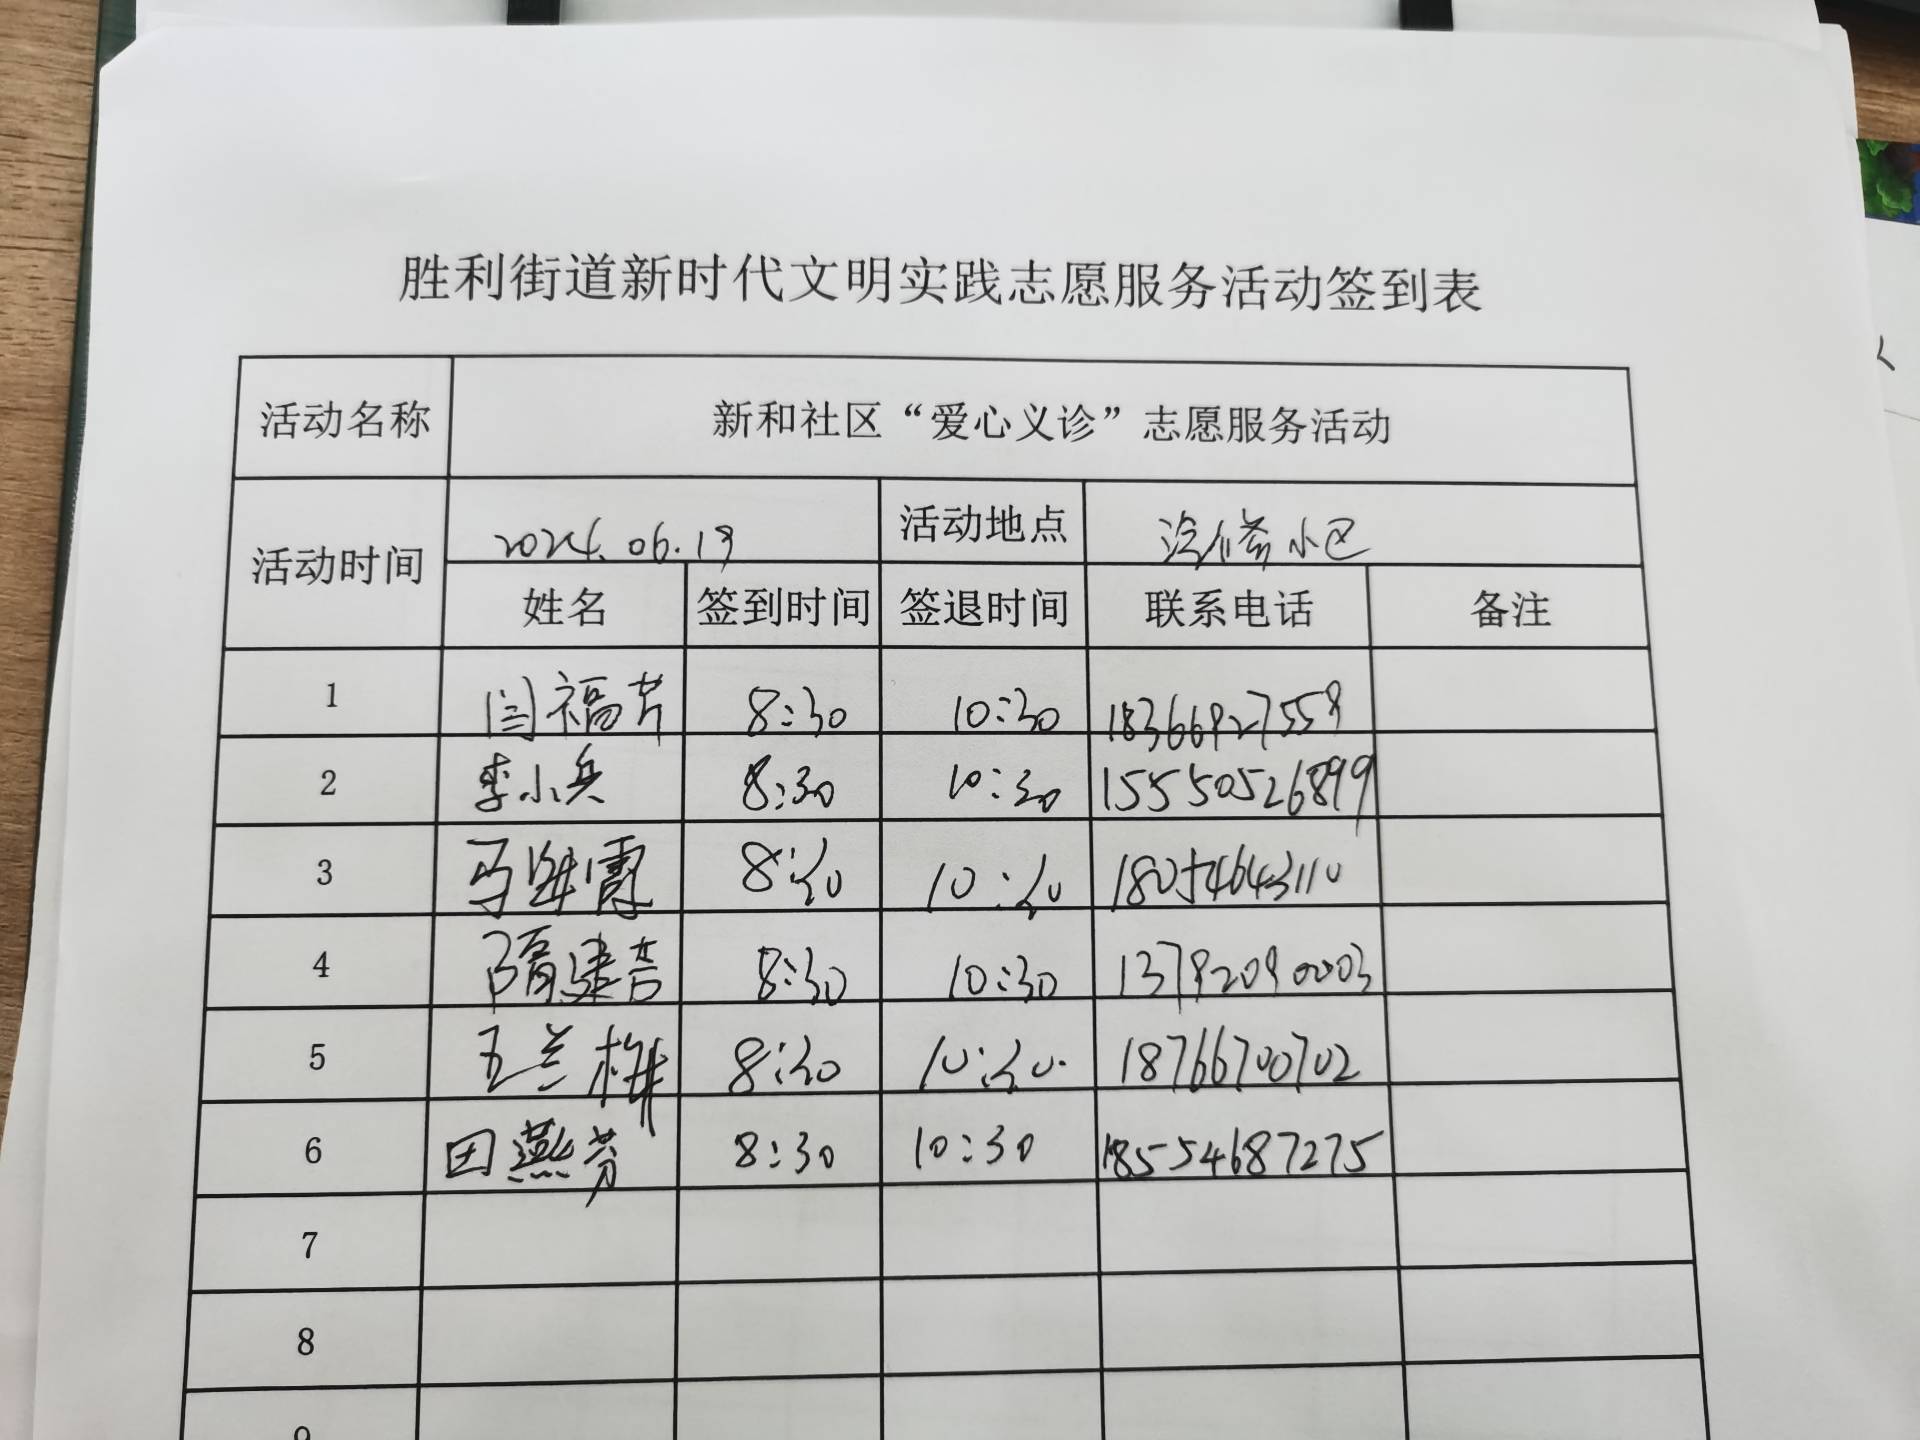 胜利街道新时代文明实践志愿服务活动签到表
活动名称 新和社区“爱心义诊”志愿服务活动
活动时间 2024.06.19 活动地点 汽修小区
姓名 签到时间 签退时间 联系电话 备注
1 闫福芹 8:30 10:30
2 李小兵 8:30 10:30 15550526899
3 8:30 10:30 18054643110
4 隋建吉 8:30 10:30 13792090003
5 王兰 8:30 10:30. 18766700702
6 田燕芬 8:30 10:30 18554687275
7
8
9